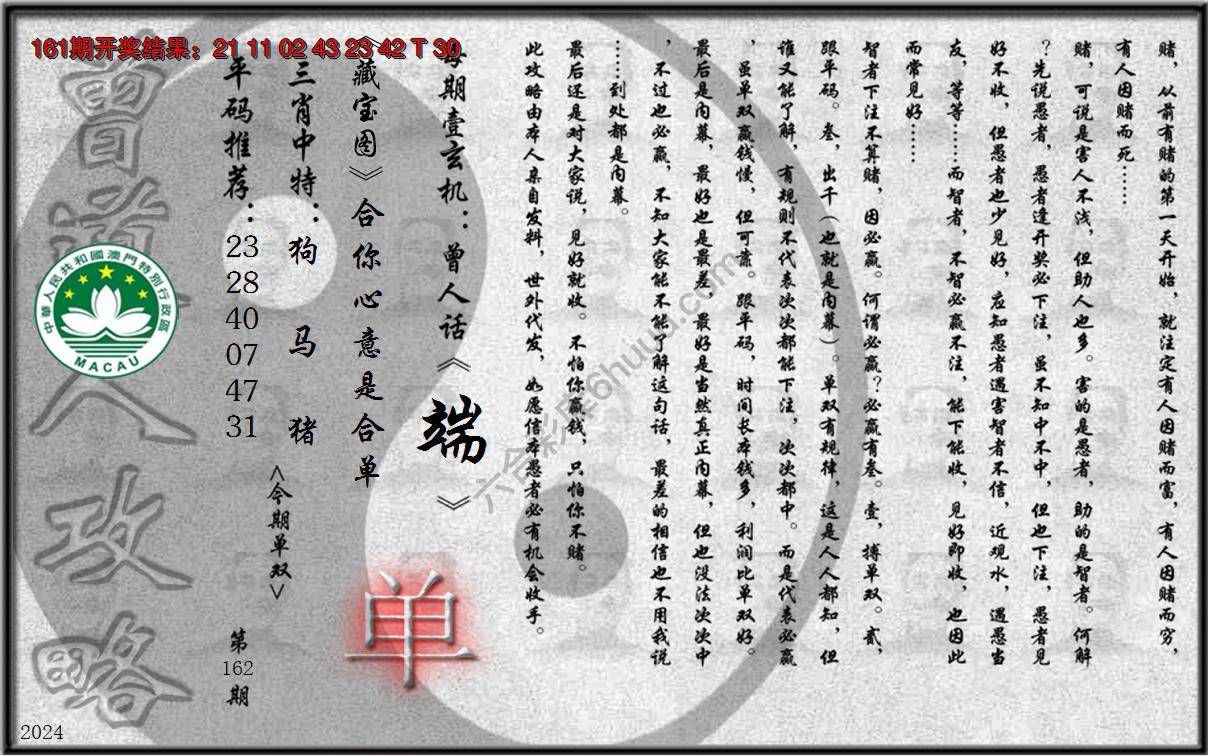 161期开奖结果：21 11 02 43 23 42 T 30
赌，从前有赌的第一天开始，就注定有人因赌而富，有人因赌而穷，
有人因赌而死……
赌，可说是害人不浅，但助人也多。害的是愚者，助的是智者。何解
？先说愚者，愚者逢开奖必下注，虽不知中不中，但也下注，愚者见
好不收，但愚者也少见好，应知愚者遇害智者不信，近观水，遇愚当
友，等等……而智者，不智必赢不注，能下能收，见好即收，也因此
而常见好……
智者下注不算赌，因必赢。何谓必赢？必赢有叁。壹，搏单双。贰，
跟平码。叁，出千（也就是内幕）。单双有规律，这是人人都知，但
谁又能了解，有规则不代表次次都能下注，次次都中。而是代表必赢
，虽单双赢钱慢，但可靠。跟平码，时间长本钱多，利润比单双好。
最后是内幕，最好也是最差，最好是当然真正内幕，但也没法次次中
，不过也必赢，不知大家能不能了解这句话，最差的相信也不用我说
……到处都是内幕。
最后还是对大家说，见好就收。不怕你赢钱，只怕你不赌。
此攻略由本人亲自发料，世外代发，如愿信本愚者必有机会收手。
每期壹玄机：曾人话《端》
《藏宝图》合你心意是合单
单
三肖中特：狗 马 猪
<今期单双>
平码推荐：
23
28
40
07
47
31
第
162
期
曾道人攻略
中華人民共和國澳門特別行政區
MACAU
六合彩库6huuu.com
2024